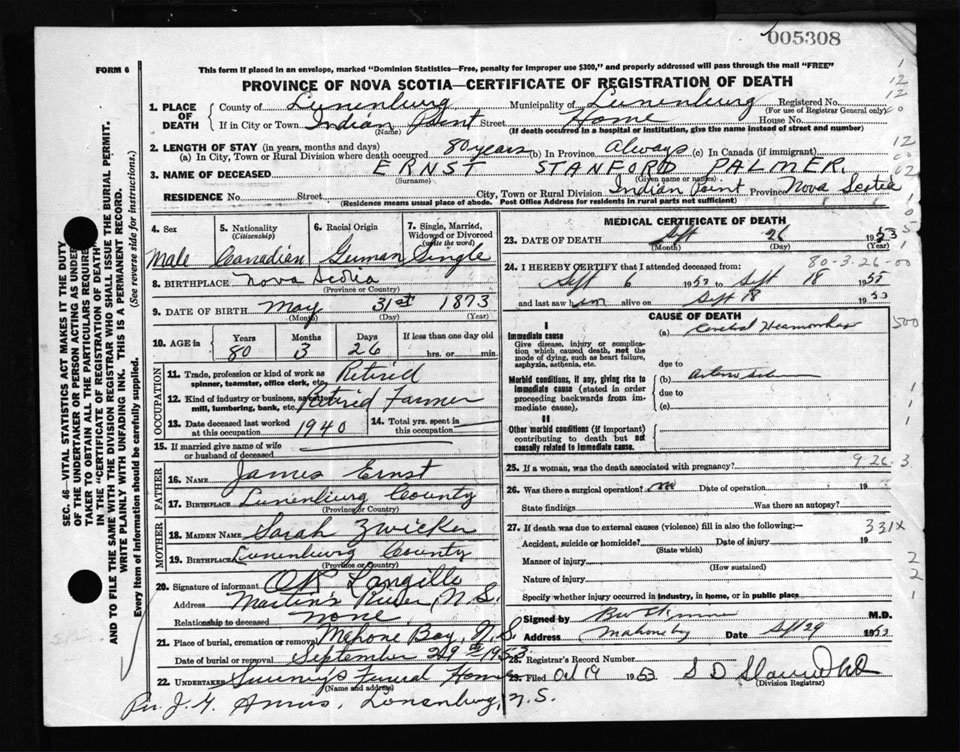 005308
FORM 6
This form if placed in an envelope, marked "Dominion Statistics—Free, penalty for improper use $300," and properly addressed will pass through the mail "FREE"
PROVINCE OF NOVA SCOTIA—CERTIFICATE OF REGISTRATION OF DEATH
1. PLACE OF DEATH County of Lunenburg Municipality of Lunenburg Registered No.
(For use of Registrar General only)
If in City or Town Indian Point Street Home House No.
(Name) (If death occurred in a hospital or institution, give the name instead of street and number)
2. LENGTH OF STAY (in years, months and days)
(a) In City, Town or Rural Division where death occurred 80 years (b) In Province Always (c) In Canada (if immigrant)
3. NAME OF DECEASED ERNST STANFORD PALMER.
(Surname) (Given name or names)
RESIDENCE No. Street City, Town or Rural Division Indian Point Province Nova Scotia
(Residence means usual place of abode. Post Office Address for residents in rural parts not sufficient)
4. Sex Male
5. Nationality (Citizenship) Canadian
6. Racial Origin German
7. Single, Married, Widowed or Divorced (write the word) Single
8. BIRTHPLACE Nova Scotia
(Province or Country)
9. DATE OF BIRTH May 31st 1873
(Month) (Day) (Year)
10. AGE in Years Months Days If less than one day old
80 3 26 hrs. or min.
OCCUPATION
11. Trade, profession or kind of work as spinner, teamster, office clerk, etc. Retired
12. Kind of industry or business, as cotton mill, lumbering, bank, etc. Retired Farmer
13. Date deceased last worked at this occupation 1940
14. Total yrs. spent in this occupation
15. If married give name of wife or husband of deceased
FATHER
16. NAME James Ernst
17. BIRTHPLACE Lunenburg County
(Province or Country)
MOTHER
18. MAIDEN NAME Sarah Zwicker
19. BIRTHPLACE Lunenburg County
(Province or Country)
20. Signature of informant Langille
Address Martin's River, N.S.
Relationship to deceased none
21. Place of burial, cremation or removal Mahone Bay, N.S.
Date of burial or removal September 29th 1953
22. UNDERTAKER Funeral Home
(Name and address)
Per J. Lunenburg, N.S.
MEDICAL CERTIFICATE OF DEATH
23. DATE OF DEATH Sept 26 1953
(Month) (Day) (Year)
80-3-26-00
24. I HEREBY CERTIFY that I attended deceased from:
Sept 6 1953 to Sept 18 1953
and last saw him alive on Sept 18 1953
CAUSE OF DEATH
I
Immediate cause (a) Cerebral
Give disease, injury or complication which caused death, not the mode of dying, such as heart failure, asphyxia, asthenia, etc.
due to
Morbid conditions, if any, giving rise to immediate cause (stated in order proceeding backwards from immediate cause). (b)
due to
(c)
II
Other morbid conditions (if important) contributing to death but not causally related to immediate cause.
25. If a woman, was the death associated with pregnancy?
9-26-3
26. Was there a surgical operation? no Date of operation 19
State findings Was there an autopsy?
27. If death was due to external causes (violence) fill in also the following:—
331X
Accident, suicide or homicide? Date of injury 19
(State which)
Manner of injury
(How sustained)
Nature of injury
Specify whether injury occurred in industry, in home, or in public place
Signed by M.D.
Address Mahone Bay Date Sept 29 1953
28. Registrar's Record Number
29. Filed Oct 19 1953 S D
(Division Registrar)
SEC. 46—VITAL STATISTICS ACT MAKES IT THE DUTY
OF THE UNDERTAKER OR PERSON ACTING AS UNDERTAKER TO OBTAIN ALL THE PARTICULARS REQUIRED
IN THE "CERTIFICATE OF REGISTRATION OF DEATH"
AND TO FILE THE SAME WITH THE DIVISION REGISTRAR WHO SHALL ISSUE THE BURIAL PERMIT.
WRITE PLAINLY WITH UNFADING INK. THIS IS A PERMANENT RECORD.
Every item of information should be carefully supplied. (See reverse side for instructions.)